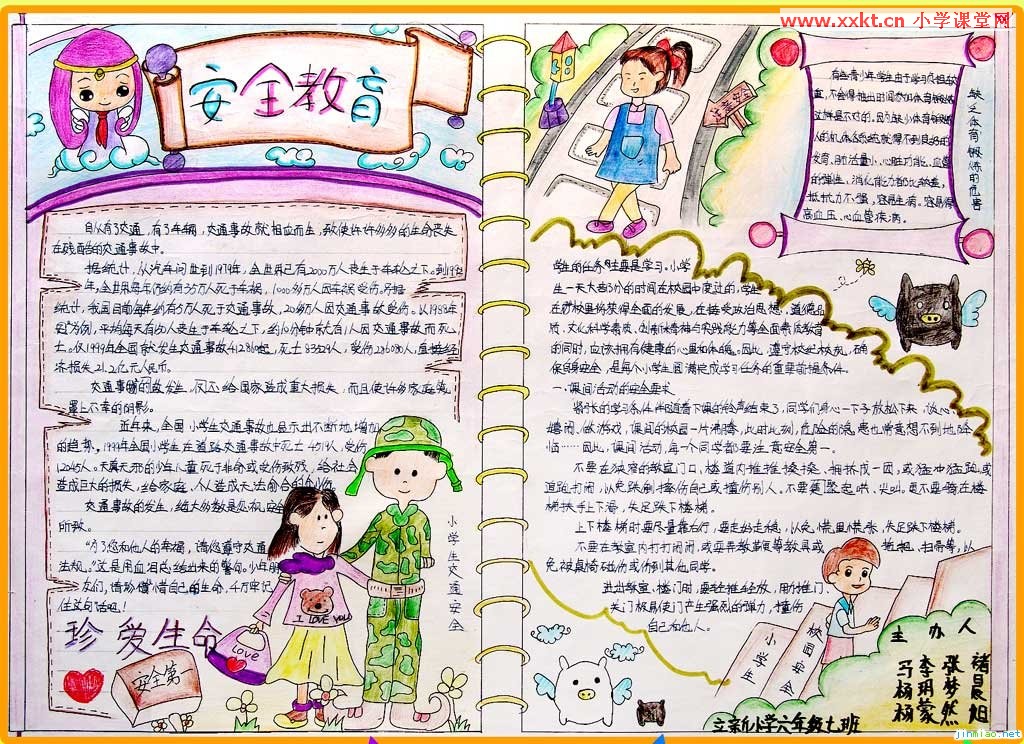 www.xxkt.cn 小学课堂网
安全教育
自从有交通，有了车辆，交通事故就相应而生，致使许许多多的生命丧失
在残酷的交通事故中。
据统计，从汽车问世到1979年，全世界已有2000万人丧生于车轮之下。到19
年，全世界每年仍约有35万人死于车祸，1000多万人因车祸受伤。另据
统计，我国目前每年约有5万人死于交通事故，20多万人因交通事故受伤。以1998年
土。仅1999年全国就发生交通事故412860起，死亡83529人，受伤286080人，直接经
济损失21.2亿元人民币。
交通事故的发生，不仅给国家造成重大损失，而且使许多家庭笼
罩上不幸的阴影。
近年来，全国小学生交通事故也显示出不断地增加
的趋势，1999年全国小学生在道路交通事故中死亡4519人，受伤
12045人。天真无邪的少年儿童死于非命或受伤致残，给社会
造成巨大的损失，给家庭、个人造成无法愈合的创伤。
交通事故的发生，绝大多数是忽视安全
所致。
“为了您和他人的幸福，请您遵守交通
法规。”这是用血泪总结出来的警句。少年朋
友们，请珍惜自己的生命，千万牢记
住这句话吧！
珍爱生命
安全第一
小学生交通安全
I LOVE YOU
Love
注意安全
有些青少年学生由于学习负担较
重，不会得抽出时间参加体育锻炼
这样是不对的。因为缺少体育锻炼
人的机体各系统就得不到良好的
发育。肺活量小、心脏功能、血管
的弹性、消化能力都比较差，
抵抗力不强，容易生病。容易得
高血压、心血管疾病。
缺乏体育锻炼的危害
学生的任务主要是学习。小学
生一天大约有1/3的时间在校园中度过的，学生
在学校里将获得全面的发展，在接受政治思想、道德品
质、文化科学素质、创新精神与实践能力等全面素质教育
的同时，应该拥有健康的心里和体魄。因此，遵守校纪校规，确
保自身安全，是每个小学生圆满完成学习任务的重要前提条件。
一、课间活动的安全要求
紧张的学习条件伴随着下课的铃声结束了，同学们身心一下子放松下来，谈心
嬉闹、做游戏，课间的校园一片沸腾，此时此刻，危险的隐患也悄意想不到地降
临……因此，课间活动，每一个同学都要注意安全第一。
不要在狭窄的教室门口，楼道内推推搡搡、拥挤成一团，或猛冲猛跑，或
追跑打闹，以免跌倒撞伤自己或撞伤别人。不要起哄、尖叫。更不要骑在楼
梯扶手上下滑，失足跌下楼梯。
上下楼梯时要尽量靠右行，要走好走稳，以免慌里慌张，失足跌下楼梯。
不要在教室内打打闹闹，或耍弄教鞭等教具或拖把、扫帚等，以
免被桌椅磕伤或伤到其他同学。
进出教室、楼门时，要轻推轻放，用力推门、
关门极易使门产生强烈的弹力，撞伤
自己和他人。
小学生
校园安全
主办人
褚晨旭
张梦然
李玥蒙
马杨杨
立新小学六年级七班
jinmiao.net